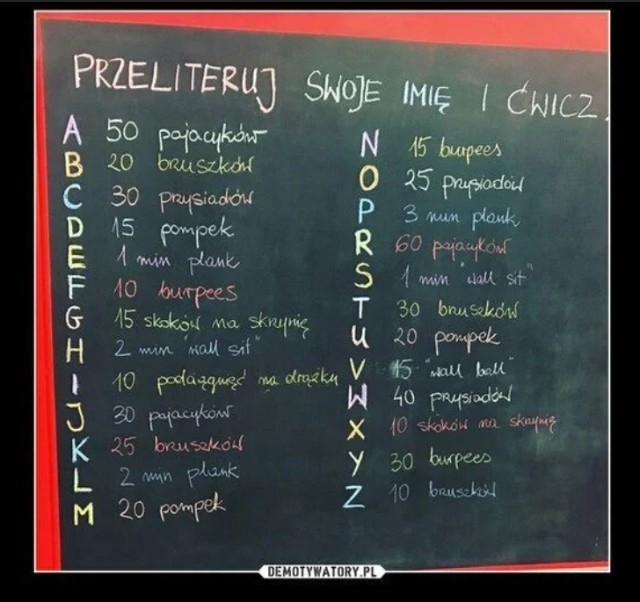 PRZELITERUJ SWOJE IMIĘ I ĆWICZ
A 50 pajacyków
B 20 brzuszków
C 30 przysiadów
D 15 pompek
E 1 min plank
F 10 burpees
G 15 skoków na skrzynię
H 2 min "wall sit"
I 10 podciągnięć na drążku
J 30 pajacyków
K 25 brzuszków
L 2 min plank
M 20 pompek
N 15 burpees
O 25 przysiadów
P 3 min plank
R 60 pajacyków
S 1 min "wall sit"
T 30 brzuszków
U 20 pompek
V 15 "wall ball"
W 40 przysiadów
X 10 skoków na skrzynię
Y 30 burpees
Z 10 brzuszków
DEMOTYWATORY.PL